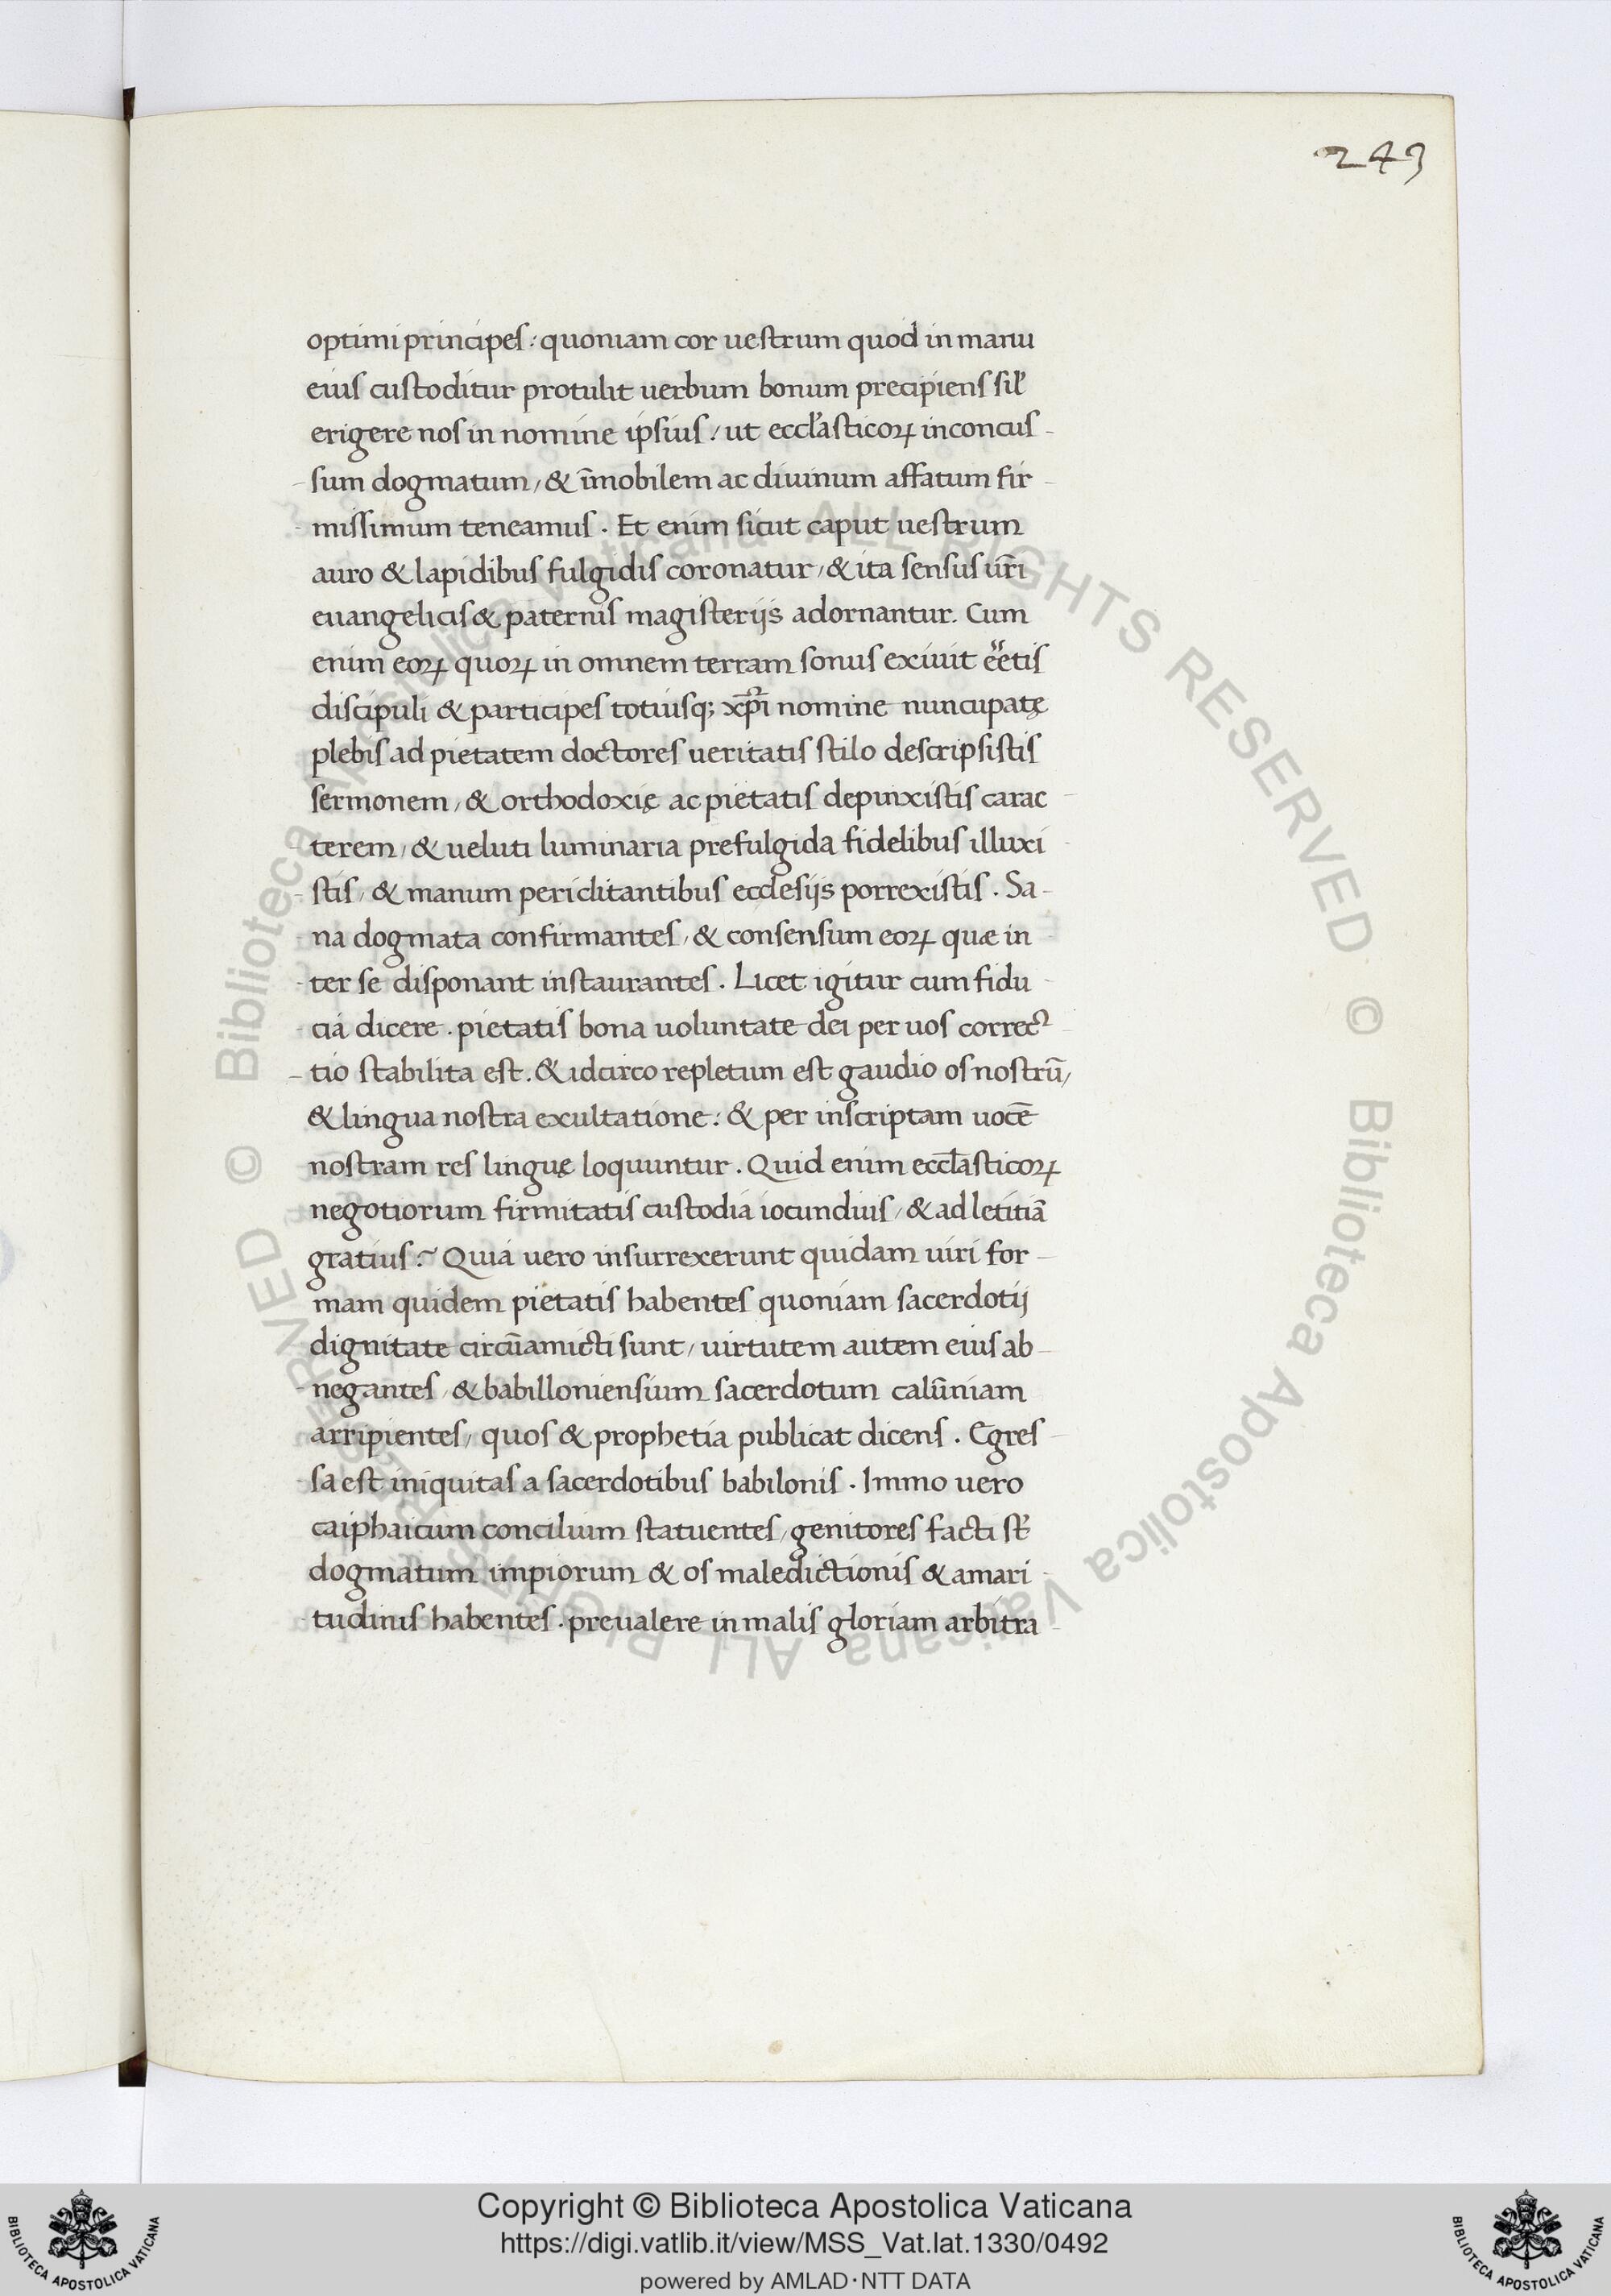 243
optimi principes: quoniam cor uestrum quod in manu
eius custoditur protulit uerbum bonum precipiens sil'
erigere nos in nomine ipsius: ut eccl'asticoꝝ inconcus-
sum dogmatum, & īmobilem ac diuinum affatum fir-
missimum teneamus. Et enim sicut caput uestrum
auro & lapidibus fulgidis coronatur, & ita sensus ur̄i
euangelicis & paternis magisterijs adornantur. Cum
enim eoꝝ quoꝝ in omnem terram sonus exiuit
discipuli & participes totiusq; xp̄i nomine nuncupatę
plebis ad pietatem doctores ueritatis stilo descripsistis
sermonem, & orthodoxię ac pietatis depinxistis carac-
terem, & ueluti luminaria prefulgida fidelibus illuxi-
stis, & manum periclitantibus ecclesijs porrexistis. Sa-
na dogmata confirmantes, & consensum eoꝝ quæ in-
ter se disponant instaurantes. Licet igitur cum fidu-
cia dicere. pietatis bona uoluntate dei per uos correc-
tio stabilita est. & idcirco repletum est gaudio os nostrū,
& lingua nostra exultatione: & per inscriptam uocē
nostram res linguę loquuntur. Quid enim eccl'asticoꝝ
negotiorum firmitatis custodia iocundius, & ad letitiā
gratius? Quia uero insurrexerunt quidam uiri for-
mam quidem pietatis habentes quoniam sacerdotij
dignitate circūamicti sunt, uirtutem autem eius ab-
negantes, & babilloniensium sacerdotum calūniam
arripientes, quos & prophetia publicat dicens. Egres-
sa est iniquitas a sacerdotibus babilonis. Immo uero
caiphaicum concilium statuentes, genitores facti st̄
dogmatum impiorum & os maledictionis & amari-
tudinis habentes. preualere in malis gloriam arbitra-
© Biblioteca Apostolica Vaticana ALL RIGHTS RESERVED
© Biblioteca Apostolica Vaticana ALL RIGHTS RESERVED
Copyright © Biblioteca Apostolica Vaticana
https://digi.vatlib.it/view/MSS_Vat.lat.1330/0492
powered by AMLAD·NTT DATA
BIBLIOTECA APOSTOLICA VATICANA
BIBLIOTECA APOSTOLICA VATICANA